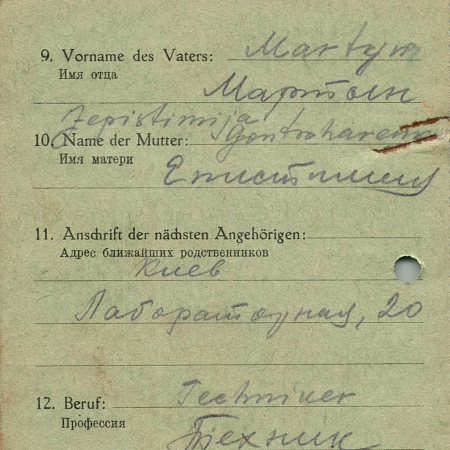 9. Vorname des Vaters: Martyn
Имя отца
Мартын
Jepistimija
10. Name der Mutter:
Имя матери
Епистимия
11. Anschrift der nächsten Angehörigen:
Адрес ближайших родственников
Киев
Лабораторная, 20
12. Beruf: Techniker
Профессия
Техник